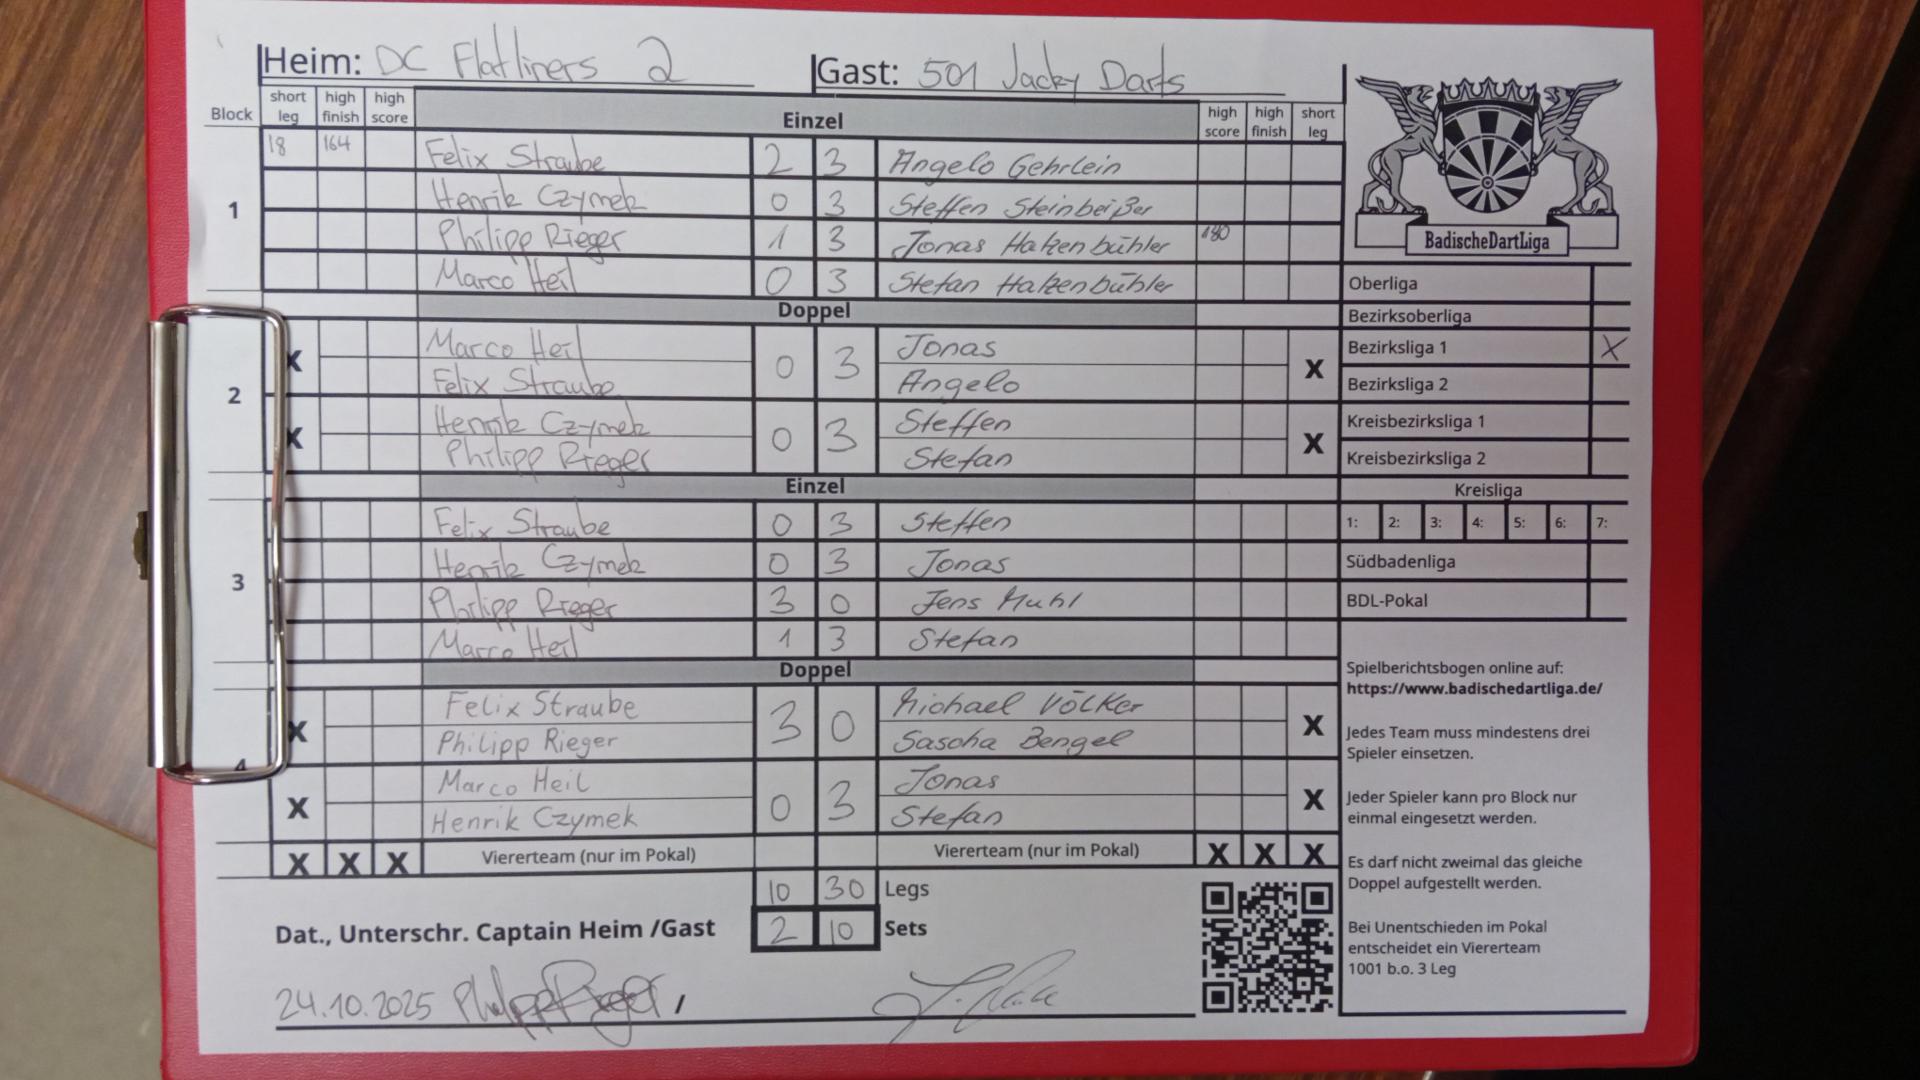 Heim: DC Flatliners 2 Gast: 501 Jacky Darts
Block short leg high finish high score Einzel high score high finish short leg
18 164 Felix Straube 2 3 Angelo Gehrlein
Henrik Czymek 0 3 Steffen Steinbeißer
1
Philipp Rieger 1 3 Jonas Hatzenbühler 180
Marco Heil 0 3 Stefan Hatzenbühler
Doppel
Marco Heil 0 3 Jonas
X X
Felix Straube Angelo
2
Henrik Czymek 0 3 Steffen
X X
Philipp Rieger Stefan
Einzel
Felix Straube 0 3 Steffen
Henrik Czymek 0 3 Jonas
3
Philipp Rieger 3 0 Jens Muhl
Marco Heil 1 3 Stefan
Doppel
Felix Straube 3 0 Michael Völker
X X
Philipp Rieger Sascha Bengel
4
Marco Heil 0 3 Jonas
X X
Henrik Czymek Stefan
X X X Viererteam (nur im Pokal) Viererteam (nur im Pokal) X X X
10 30 Legs
Dat., Unterschr. Captain Heim /Gast 2 10 Sets
24.10.2025 Philipp Rieger /
BadischeDartLiga
Oberliga
Bezirksoberliga
Bezirksliga 1 X
Bezirksliga 2
Kreisbezirksliga 1
Kreisbezirksliga 2
Kreisliga
1: 2: 3: 4: 5: 6: 7:
Südbadenliga
BDL-Pokal
Spielberichtsbogen online auf:
https://www.badischedartliga.de/
Jedes Team muss mindestens drei
Spieler einsetzen.
Jeder Spieler kann pro Block nur
einmal eingesetzt werden.
Es darf nicht zweimal das gleiche
Doppel aufgestellt werden.
Bei Unentschieden im Pokal
entscheidet ein Viererteam
1001 b.o. 3 Leg